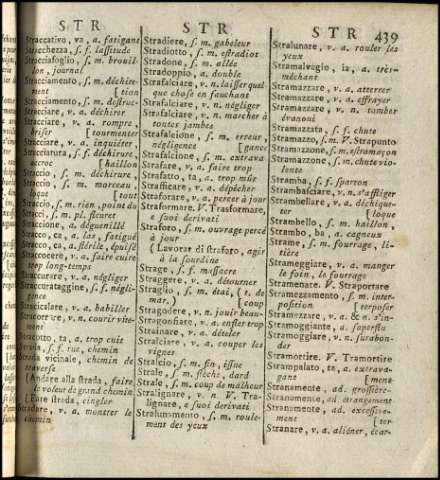 STR
STR
STR 439
Straccativo, va, a. fatigant
Stracchezza, s. f. lassitude
Stracciafoglio, s. m. brouil-
lon, journal
Stracciamento, s. m. déchire-
ment [tion
Stracciamento, s. m. destruc-
Stracciare, v. a. déchirer
Stracciare, v. a. rompre,
briser [tourmenter
Stracciare, v. a. inquiéter,
Stracciatura, s. f. déchirure,
accroc [haillon
Straccio, s. m. déchirure,
Straccio, s. m. morceau
loque [tout
Straccio, s. m. rien, point du
Stracci, s. m. pl. fleuret
Straccione, a. déguenillé
Stracco, ca, a. las, fatigué
Stracco, ca, a. stérile, épuisé
Stracocere, v. a. faire cuire
trop long-temps
v. a. négliger
Straccurataggine, s. f. négli-
gence
v. a. babiller
v. n. courir vite-
ment
Stracotto, ta, a. trop cuit
Strada, s. f. rue, chemin
Strada vicinale, chemin de
traverse
[Andare alla strada, faire
le voleur de grand chemin
[Fare strada, cingler
Stradare, v. a. montrer le
chemin
Stradiere, s. m. gabeleur
Stradiotto, s. m. estradiot
Stradone, s. m. allée
Stradoppio, a. double
Strafalciare, v. n. laisser quel-
que chose en fauchant
Strafalciare, v. n. négliger
Strafalciare, v. n. marcher à
toutes jambes
Strafalcione, s. m. erreur,
négligence [gance
Strafalcione, s. m. extrava-
Strafare, v. a. faire trop
Strafatto, ta, a. trop mûr
Straficare, v. a. dépêcher
Straforare, v. a. percer à jour
Straformare. V. Trasformare,
e suoi derivati
Straforo, s. m. ouvrage percé
à jour
[Lavorar di straforo, agir
à la sourdine
Strage, s. f. massacre
Straggere, v. a. détourner
Straglio, s. m. étai, (t. de
mar.) [coup
Stragodere, v. n. jouir beau-
Stragonfiare, v. a. enfler trop
Strainare, v. a. dételer
Stralciare, v. a. couper les
vignes
Stralcio, s. m. fin, issue
Strale, s. m. flèche, dard
Strale, s. m. coup de malheur
Stralignare, v. n. V. Tra-
lignare, e suoi derivati
Stralunamento, s. m. roule-
ment des yeux
Stralunare, v. a. rouler les
yeux
Stramalvagio, ia, a. très-
méchant
Stramazzare, v. a. atterrer
Stramazzare, v. a. effrayer
Stramazzare, v. n. tomber
évanoui
Stramazzata, s. f. chute
Stramazzo, s. m. V. Strapunto
Stramazzone, s. m. estramaçon
Stramazzone, s. m. chute vio-
lente
Stramba, s. f. sparton
Strambasciare, v. n. s'affliger
Strambellare, v. a. déchique-
ter [loque
Strambello, s. m. haillon,
Strambo, ba, a. cagneux
Strame, s. m. fourrage, li-
tière
Strameggiare, v. a. manger
le foin, le fourrage
Stramenare. V. Straportare
Stramezzamento, s. m. inter-
position [terposer
Stramezzare, v. a. & n. s'in-
Stramoggiante, a. superflu
Stramoggiare, v. n. surabon-
der
Stramortire. V. Tramortire
Strampalato, ta, a. extrava-
gant [ment
Stranamente, ad. grossière-
Stranamente, ad. étrangement
Stranamente, ad. excessive-
ment [ter
Stranare, v. a. aliéner, écar-